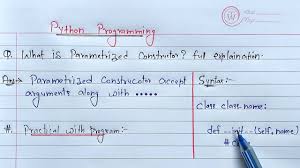 Python Programming
Q. What is Parametrized Constructor? full explaination.
Ans→ Parametrized Constructor accept
arguments along with .....
# Practical with Program:-
Syntax:-
class class-name:
def __init__(self, name)